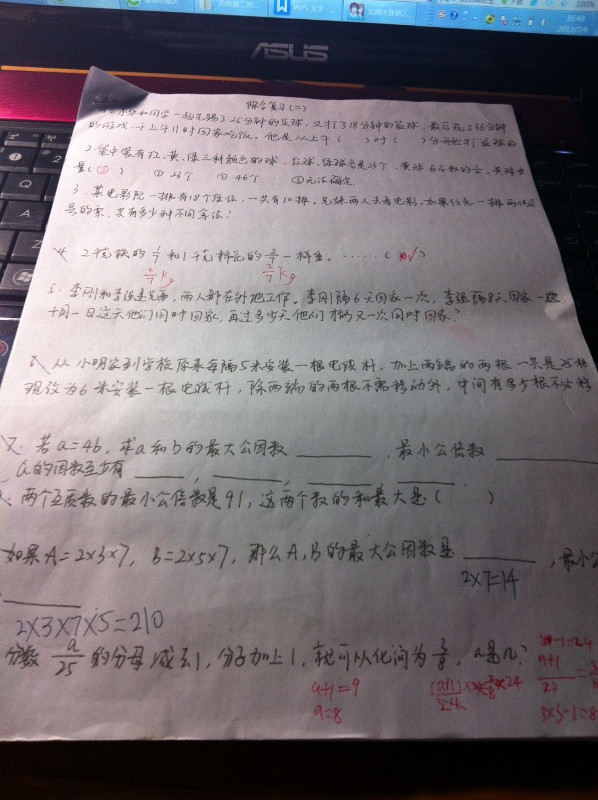 WPS 文字
16:49
ASUS
综合复习(二)
和同学一起先踢了25分钟的足球,又打了18分钟的篮球,最后玩了35分钟
的游戏,于上午11时回家吃饭。他是从上午( )时( )分开始打篮球的
2. 袋中装有红、黄、绿三种颜色的球,红球、绿球共是23个,黄球占总数的
是( ) ① 23个 ② 46个 ③ 无法确定
3. 某电影院一排有18个座位,一共有10排,兄妹两人去看电影,如果任意一排
号的票,共有多少种不同拿法?
4. 2千克铁的1/7和1千克棉花的2/7一样重。……( √)
2/7 kg 2/7 kg
5. 李刚和李强是兄弟,两人都在外地工作。李刚隔6天回家一次,李强隔8天回家一次
十月一日这天他们同时回家,再过多少天他们才能又一次同时回家?
从小明家到学校原来每隔5米安装一根电线杆,加上两端的两根一共是25根
现改为6米安装一根电线杆,除两端的两根不需移动外,中间有多少根不必移
若a=4b,求a和b的最大公因数 ,最小公倍数
a的因数至少有 , , ,
两个互质数的最小公倍数是91,这两个数的和最大是( )
如果A=2×3×7,B=2×5×7,那么A,B的最大公因数是 ,最小公
2×7=14
2×3×7×5=210
分数 a/25 的分母减去1,分子加上1,就可以化简为3/8,a是几?
a+1=9
a=8
3×3-1=8